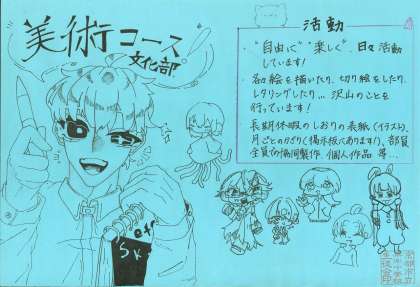 美術コース
文化部
活動
"自由に" "楽しく" 日々活動
しています!
各々絵を描いたり、切り絵をしたり、
レタリングしたり…沢山のことを
行っています!
長期休暇のしおりの表紙(イラスト)、
月ごとのかざり(掲示板にあります)、部員
全員の協同製作 個人作品 等…